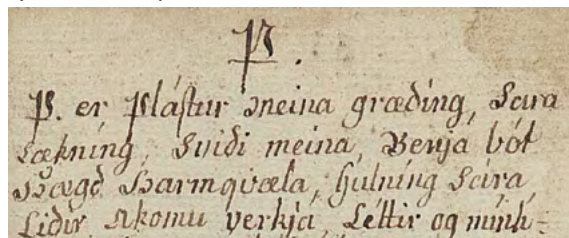 P.
P. er Pláſtur meina græðíng, Sára
Lækníng, Sviði meina, Benja bót
Hægð Harmqvæla, Hulníng Sára,
Liðir Akomu verkja, Léttir og mínk-